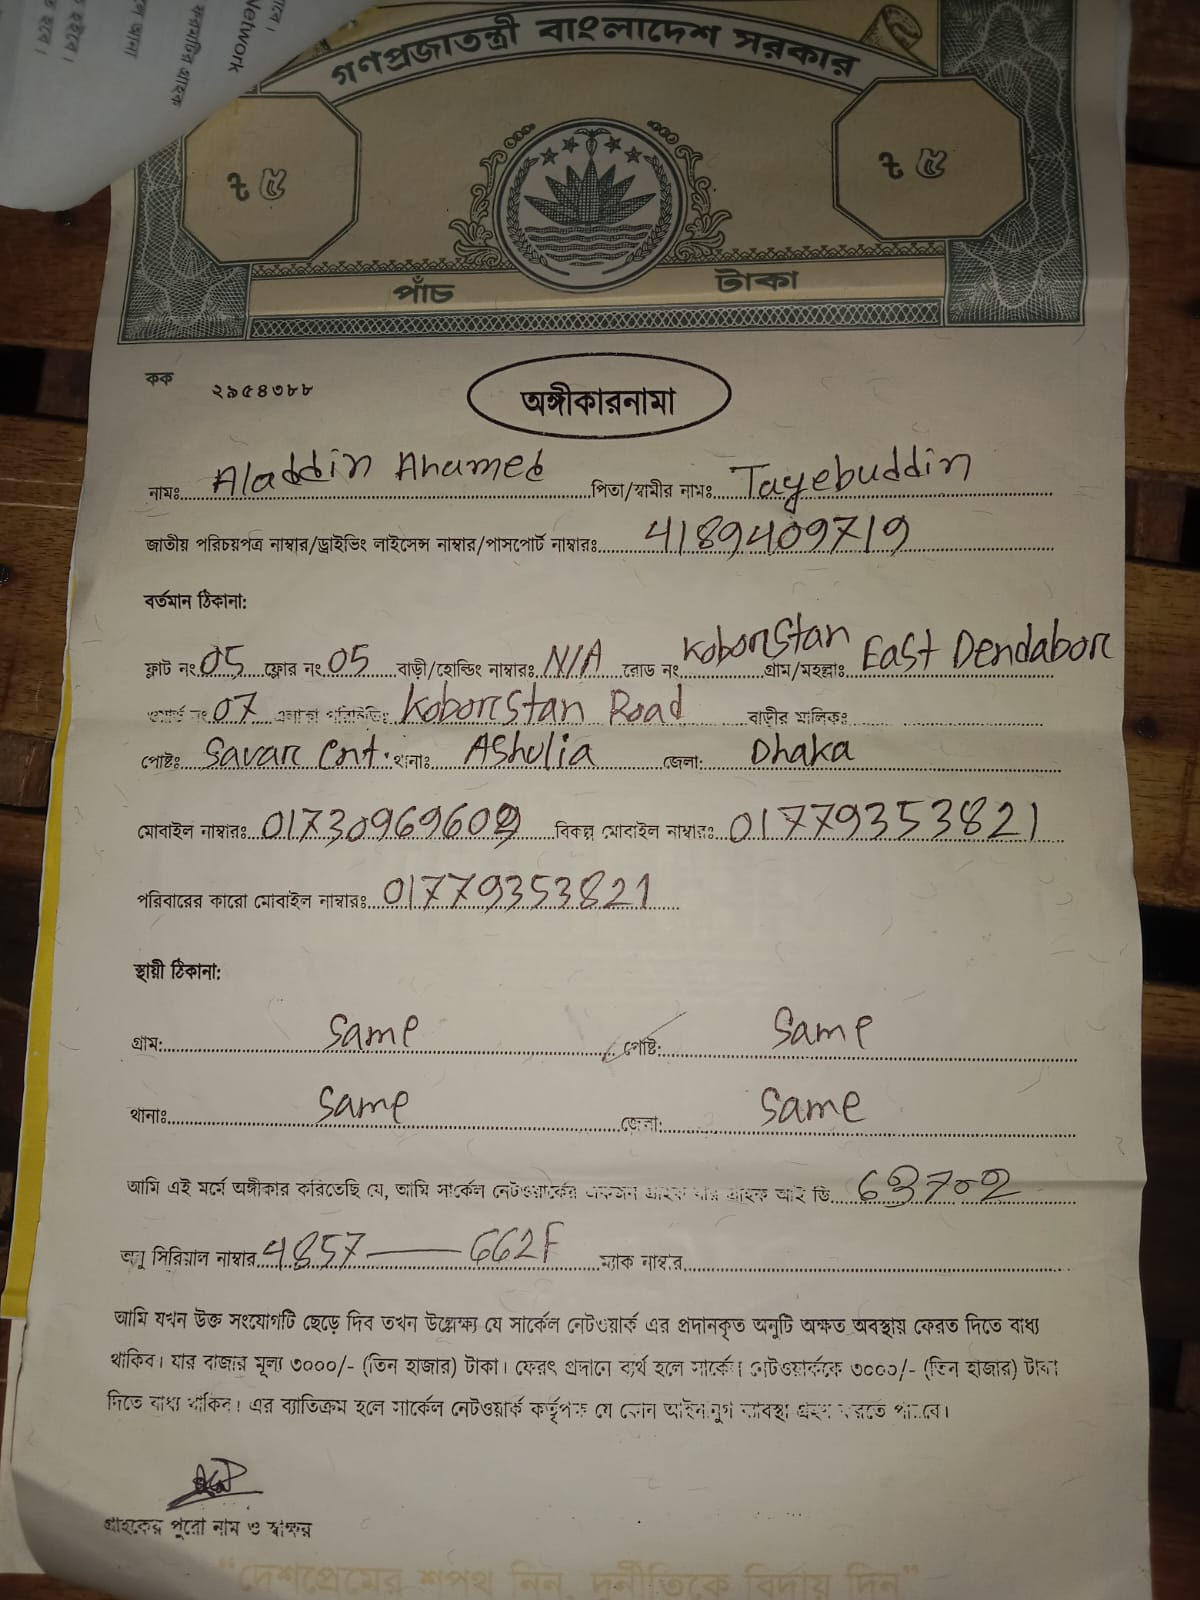 গণপ্রজাতন্ত্রী বাংলাদেশ সরকার
৳ ৫ ৳ ৫
পাঁচ টাকা
কক ২৯৫৪৩৮৮
অঙ্গীকারনামা
নামঃ Aladdin Ahamed পিতা/স্বামীর নামঃ Tayebuddin
জাতীয় পরিচয়পত্র নাম্বার/ড্রাইভিং লাইসেন্স নাম্বার/পাসপোর্ট নাম্বারঃ 4189409719
বর্তমান ঠিকানা:
ফ্লাট নং 05 ফ্লোর নং 05 বাড়ী/হোল্ডিং নাম্বারঃ N/A রোড নং Koborstan গ্রাম/মহল্লাঃ East Dendabor
ওয়ার্ড নং 07 এলাকা পরিচিতিঃ Koborstan Road বাড়ীর মালিকঃ
পোষ্টঃ Savar Cnt. থানাঃ Ashulia জেলা: Dhaka
মোবাইল নাম্বারঃ 01730969609 বিকল্প মোবাইল নাম্বারঃ 01779353821
পরিবারের কারো মোবাইল নাম্বারঃ 01779353821
স্থায়ী ঠিকানা:
গ্রাম: Same পোষ্ট: Same
থানাঃ Same জেলা: Same
আমি এই মর্মে অঙ্গীকার করিতেছি যে, আমি সার্কেল নেটওয়ার্কের একজন গ্রাহক যার গ্রাহক আই ডি 63702
অনু সিরিয়াল নাম্বার 4857 —— 662F ম্যাক নাম্বার
আমি যখন উক্ত সংযোগটি ছেড়ে দিব তখন উল্লেক্ষ্য যে সার্কেল নেটওয়ার্ক এর প্রদানকৃত অনুটি অক্ষত অবস্থায় ফেরত দিতে বাধ্য
থাকিব। যার বাজার মূল্য ৩০০০/- (তিন হাজার) টাকা। ফেরৎ প্রদানে ব্যর্থ হলে সার্কেল নেটওয়ার্ককে ৩০০০/- (তিন হাজার) টাকা
দিতে বাধ্য থাকিব। এর ব্যাতিক্রম হলে সার্কেল নেটওয়ার্ক কর্তৃপক্ষ যে কোন আইনানুগ ব্যবস্থা গ্রহণ করতে পারবে।
গ্রাহকের পুরো নাম ও স্বাক্ষর
“দেশপ্রেমের শপথ নিন, দুর্নীতিকে বিদায় দিন”
Network